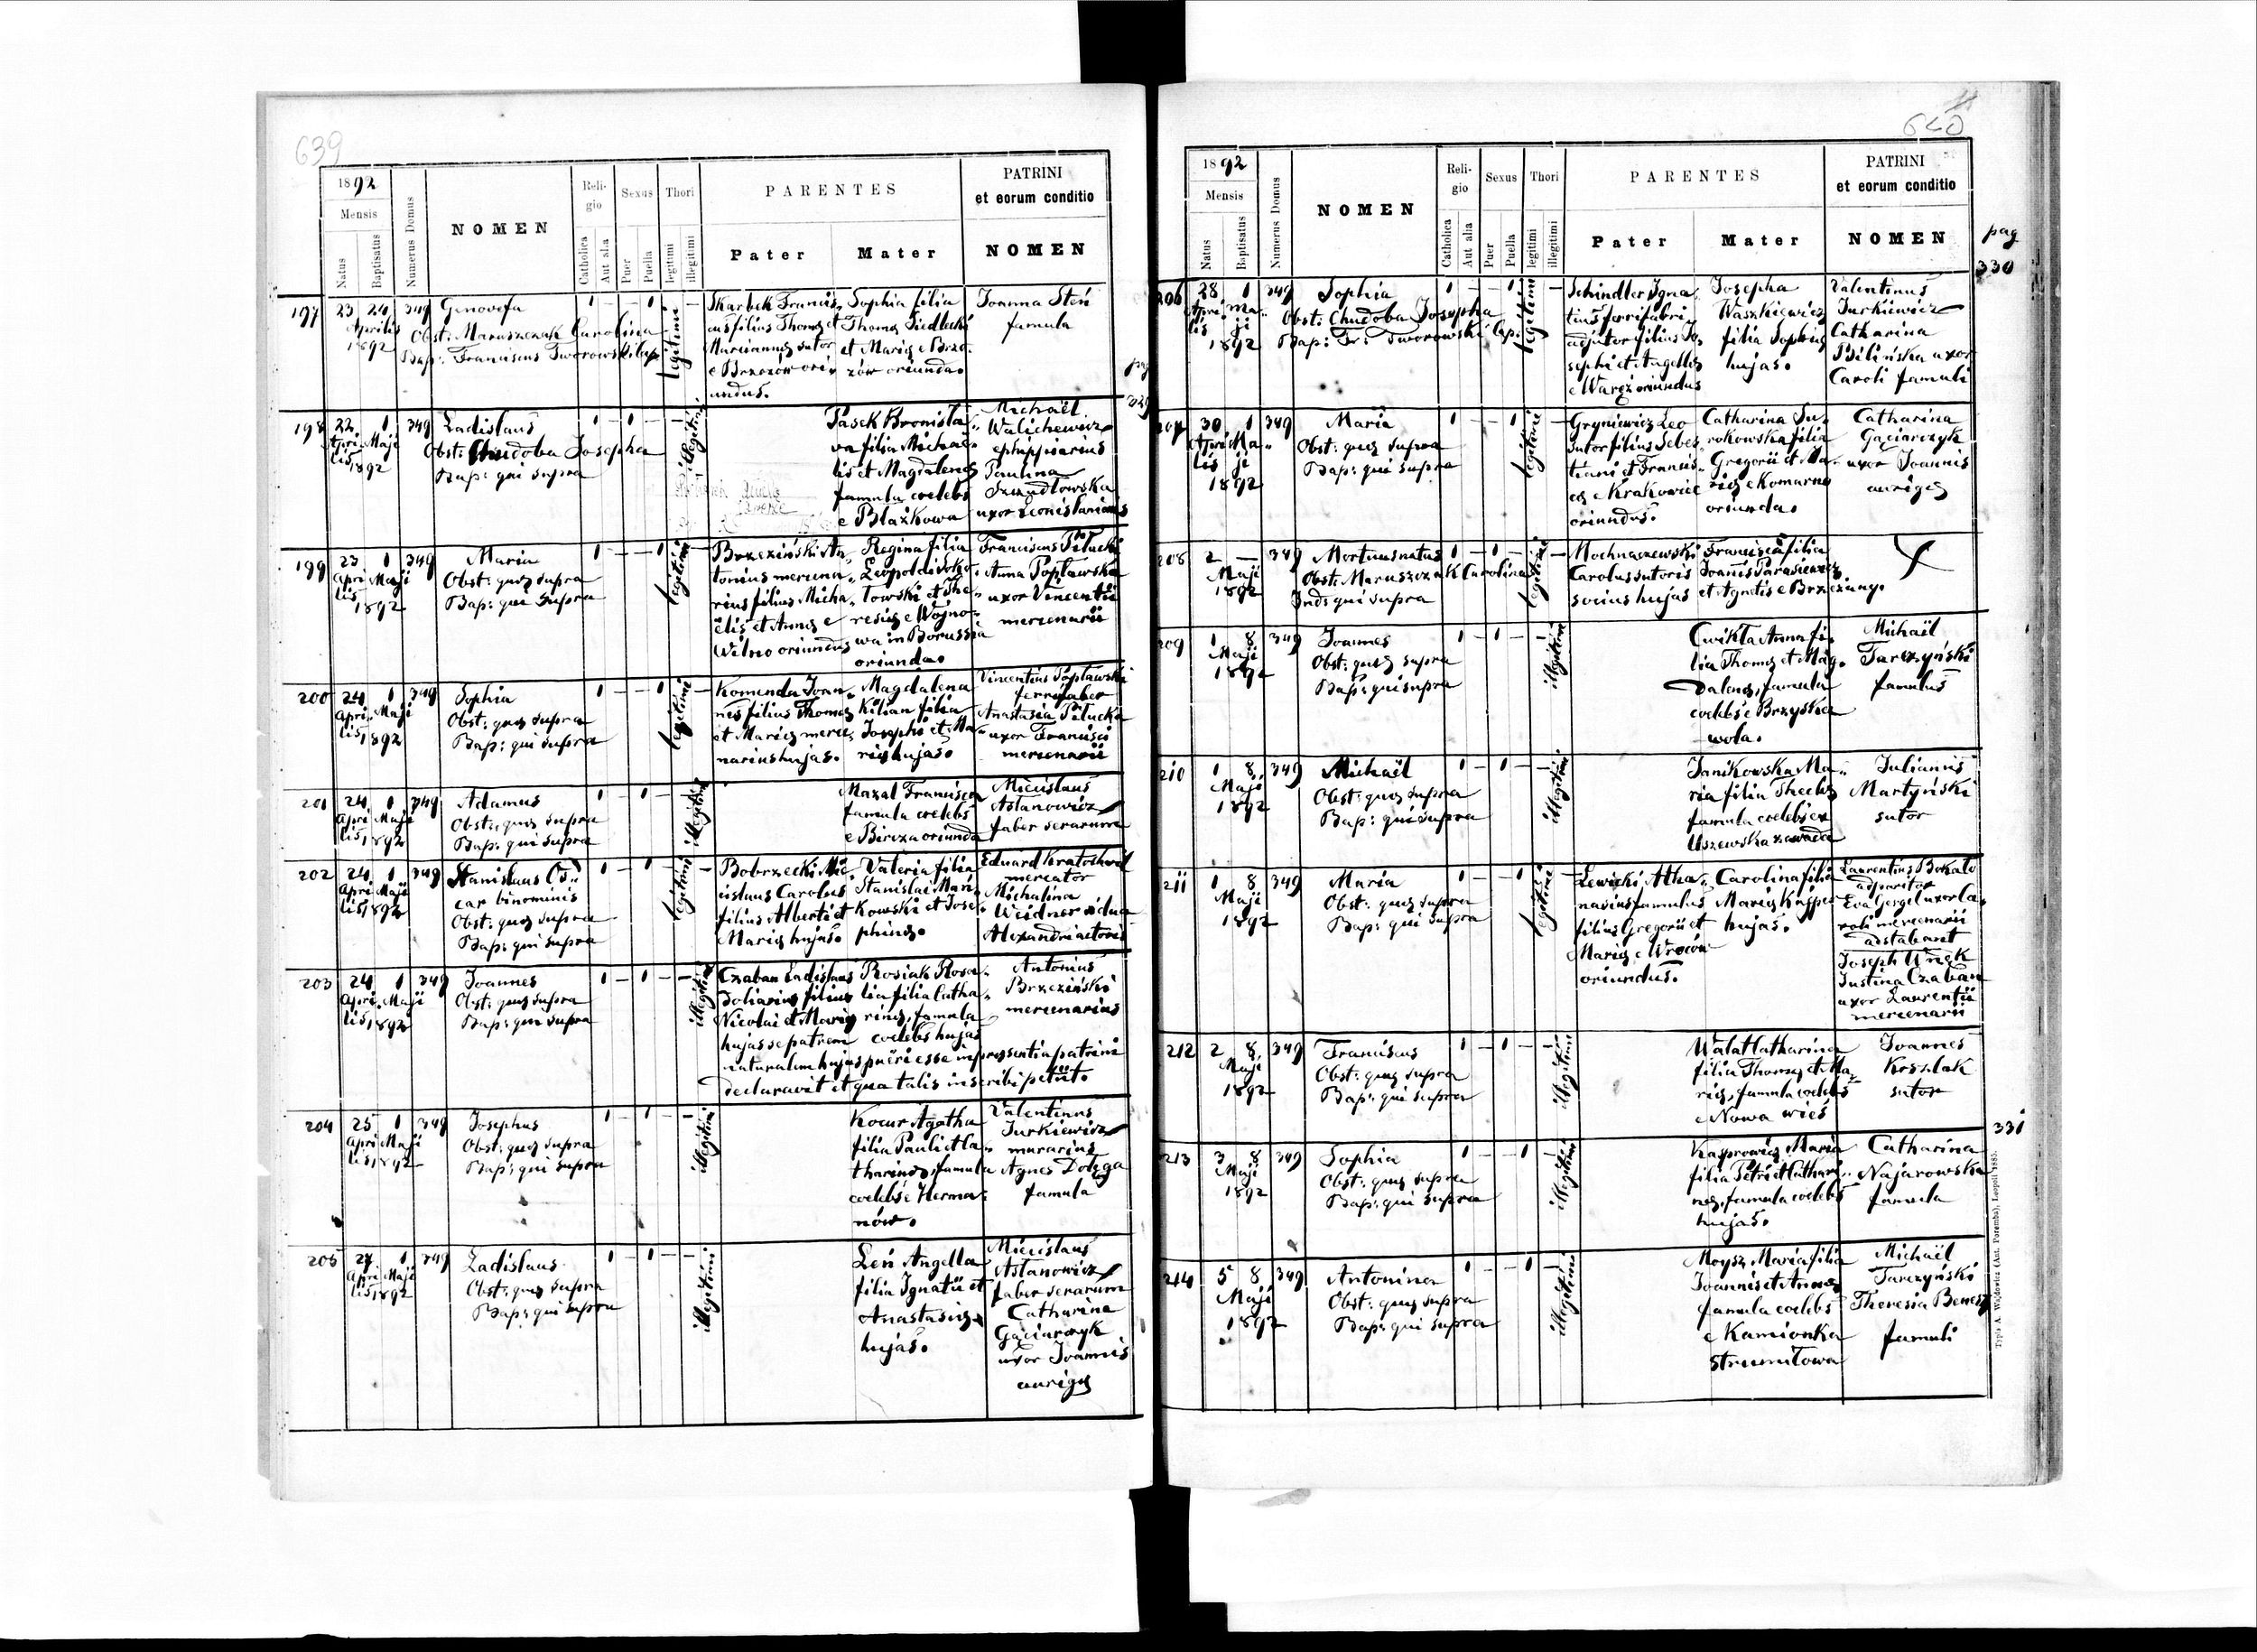 639
1892
Mensis
Natus
Baptisatus
Numerus Domus
NOMEN
Religio
Catholica
Aut alia
Sexus
Puer
Puella
Thori
legitimi
illegitimi
PARENTES
Pater
Mater
PATRINI
et eorum conditio
NOMEN
197
23 24 349
Aprilis
1892
Genovefa
Obst: Maruszczak Carolina
Bap: Franciscus Tworowski
1 - - 1
legitimi
Skarbek Francis-
cus filius Thomę et
Mariannę sutor
e Brzozów ori-
undus.
Sophia filia
Thomę Siedlecki
et Marię e Brzo-
zów oriunda.
Joanna Steń
famula
198
22 1 349
Apri- Maji
lis 1892
Ladislaus
Obst: Chudoba Josepha
Bap: qui supra
1 - 1 -
illegitimi
Pasek Bronisla-
va filia Michae-
lis et Magdalenę
famula coelebs
e Błażkowa
Michaël
Walichewicz
ephippiarius
Paulina
uxor
199
23 1 349
Apri- Maji
lis 1892
Maria
Obst: quę supra
Bap: qui supra
1 - - 1
legitimi
Brzeziński An-
tonius mercena-
rius filius Micha-
ëlis et Annę e
Wilno oriundus
Regina filia
Leopoldi Soko-
łowski et The-
resię e Wojno-
wa in Borussia
oriunda.
Franciscus Piłucki
Anna Popławska
uxor Vincentii
mercenarii
200
24 1 349
Apri- Maji
lis 1892
Sophia
Obst: quę supra
Bap: qui supra
1 - - 1
legitimi
Komenda Joan-
nes filius Thomę
et Marię merce-
narius hujas.
Magdalena
Kilian filia
Josephi et Ma-
rię hujas.
Vincentius Popławski
ferrifaber
Anastasia Piłucka
uxor Francisci
mercenarii
201
24 1 349
Apri- Maji
lis 1892
Adamus
Obst: quę supra
Bap: qui supra
1 - 1 -
illegitimi
Mazal Francisca
famula coelebs
e Bircza oriunda
Miecislaus
Astanowicz
faber serarum
202
24 1 349
Apri- Maji
lis 1892
Stanislaus Os-
car binominis
Obst: quę supra
Bap: qui supra
1 - 1 -
legitimi
Bobrzecki Mie-
cislaus Carolus
filius Alberti et
Marię hujas.
Valeria filia
Stanislai Mari-
kowski et Jose-
phinę.
Eduard Kratochwil
mercator
Michalina
Weidner vidua
Alexandri actoris
203
24 1 349
Apri- Maji
lis 1892
Joannes
Obst: quę supra
Bap: qui supra
1 - 1 - -
illegitimi
Czaban Ladislaus
doliarius filius
Nicolai et Marię
hujas se patrem
Rosiak Rosa-
lia filia Catha-
rinę, famula
coelebs hujas
naturalem hujus pueri esse in pręsentia patrini
declaravit et qua talis inscribi petiit.
Antonius
Brzeziński
mercenarius
204
25 1 349
Apri- Maji
lis 1892
Josephus
Obst: quę supra
Bap: qui supra
1 - 1 - -
illegitimi
Kocur Agatha
filia Pauli et Ca-
tharinę, famula
coelebs e Herma-
nów.
Valentinus
Jurkiewicz
murarius
Agnes Dołęga
famula
205
27 1 349
Apri- Maji
lis 1892
Ladislaus
Obst: quę supra
Bap: qui supra
1 - 1 - -
illegitimi
Leń Angella
filia Ignatii et
Anastasię
hujas.
Miecislaus
Astanowicz
faber serarum
Catharina
Gaciarczyk
uxor Joannis
aurigę
640
1892
Mensis
Natus
Baptisatus
Numerus Domus
NOMEN
Religio
Catholica
Aut alia
Sexus
Puer
Puella
Thori
legitimi
illegitimi
PARENTES
Pater
Mater
PATRINI
et eorum conditio
NOMEN
pag
330
206
28 1 349
Apri- Ma-
lis ji
1892
Sophia
Obst: Chudoba Josepha
Bap: Fr: Tworowski Cap:
1 - - 1
legitimi
Schindler Igna-
tius ferrifabri
adjutor filius Jo-
sephi et Angellę
e Waręż oriundus
Josepha
Waszkiewicz
filia Sophię
hujas.
Valentinus
Jurkiewicz
Catharina
Bilińska uxor
Caroli famuli
207
30 1 349
Apri- Ma-
lis ji
1892
Maria
Obst: quę supra
Bap: qui supra
1 - - 1
legitimi
Gryniewicz Leo
sutor filius Sebas-
tiani et Francis-
cę e Krakowiec
oriundus.
Catharina Su-
rokowska filia
Gregorii et Ma-
rię e Komarno
oriunda.
Catharina
Gaciarczyk
uxor Joannis
aurigę
208
2 - 349
Maji
1892
Mortuus natus
Obst: Maruszczak Carolina
Ind: qui supra
1 - 1 -
legitimi
Mochnaczewski
Carolus sutoris
socius hujas
Francisca filia
Joannis Parasiewicz
et Agnetis e Brzeżany.
209
1 8 349
Maji
1892
Joannes
Obst: quę supra
Bap: qui supra
1 - 1 - -
illegitimi
Cwikła Anna fi-
lia Thomę et Mag-
dalenę, famula
coelebs e Brzyska
wola.
Michaël
Tarczyński
famulus
210
1 8 349
Maji
1892
Michaël
Obst: quę supra
Bap: qui supra
1 - 1 - -
illegitimi
Janikowska Ma-
ria filia Theclę
famula coelebs ex
Uszewska zawada
Julianus
Martyński
sutor
211
1 8 349
Maji
1892
Maria
Obst: quę supra
Bap: qui supra
1 - - 1
legitimi
Lewicki Atha-
nasius famulus
filius Gregorii et
Marię e Wrocow
oriundus.
Carolina filia
Marię Kasper
hujas.
Laurentius Bokało
adparitor
Eva Gergel uxor Ca-
roli mercenarii
adstabant
Joseph Wnęk
Justina Czaban
uxor Laurentii
mercenarii
212
2 8 349
Maji
1892
Franciscus
Obst: quę supra
Bap: qui supra
1 - 1 - -
illegitimi
Walat Catharina
filia Thomę et Ma-
rię, famula coelebs
e Nowa wieś
Joannes
Koszlak
sutor
331
213
3 8 349
Maji
1892
Sophia
Obst: quę supra
Bap: qui supra
1 - - 1 -
illegitimi
Kasprowicz Maria
filia Petri et Cathari-
nę, famula coelebs
hujas.
Catharina
Najarowska
famula
214
5 8 349
Maji
1892
Antonina
Obst: quę supra
Bap: qui supra
1 - - 1 -
illegitimi
Moysz Maria filia
Joannis et Annę
famula coelebs
e Kamionka
Strumiłowa
Michaël
Tarczyński
Theresia Benesz
famuli
Typis A. Wajdowicz (Ant. Poremba), Leopoli 1885.